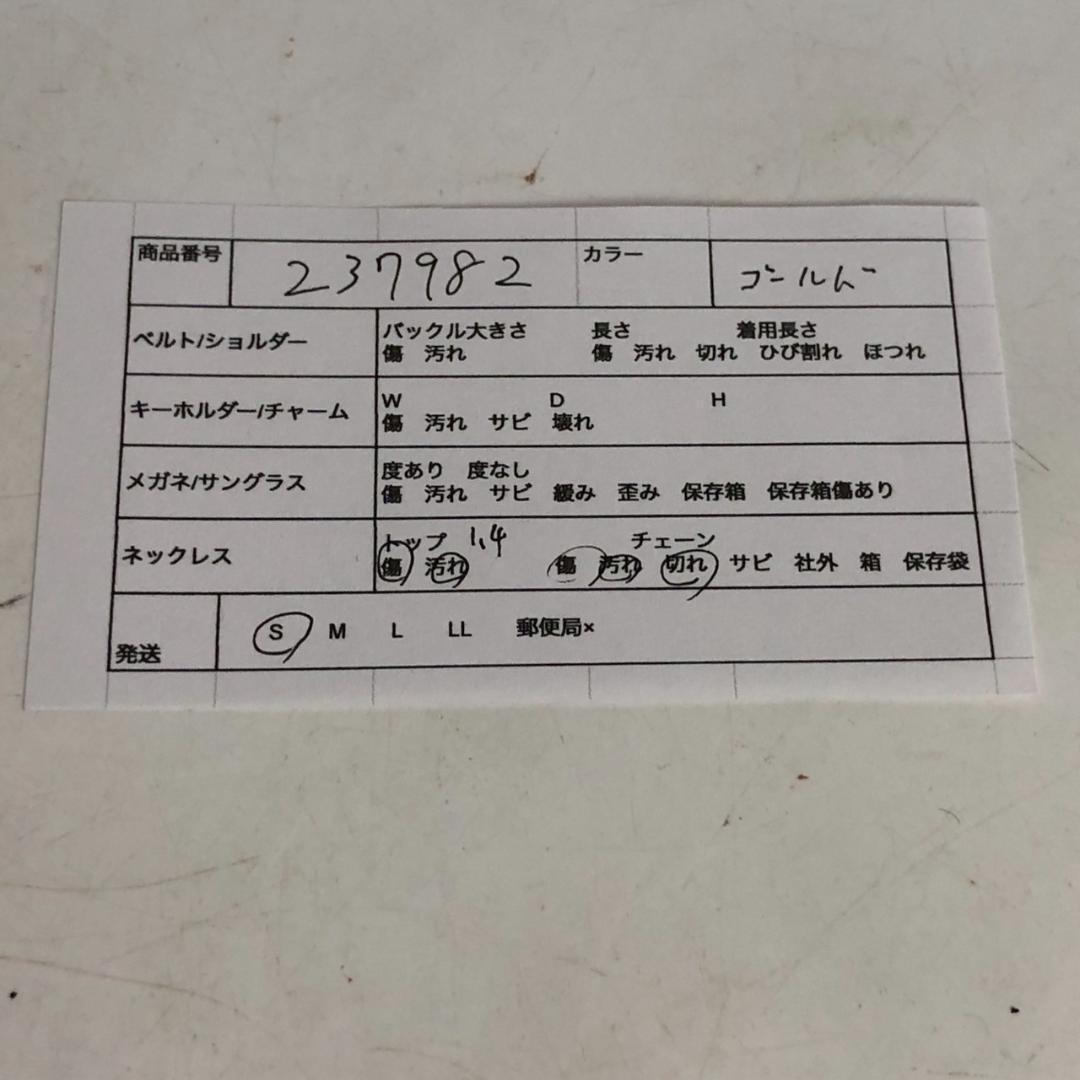 商品番号 237982 カラー ゴールド
ベルト/ショルダー バックル大きさ 長さ 着用長さ
傷 汚れ 傷 汚れ 切れ ひび割れ ほつれ
キーホルダー/チャーム W D H
傷 汚れ サビ 壊れ
メガネ/サングラス 度あり 度なし
傷 汚れ サビ 緩み 歪み 保存箱 保存箱傷あり
ネックレス トップ 1,4 チェーン
傷 汚れ 傷 汚れ 切れ サビ 社外 箱 保存袋
発送 S M L LL 郵便局×